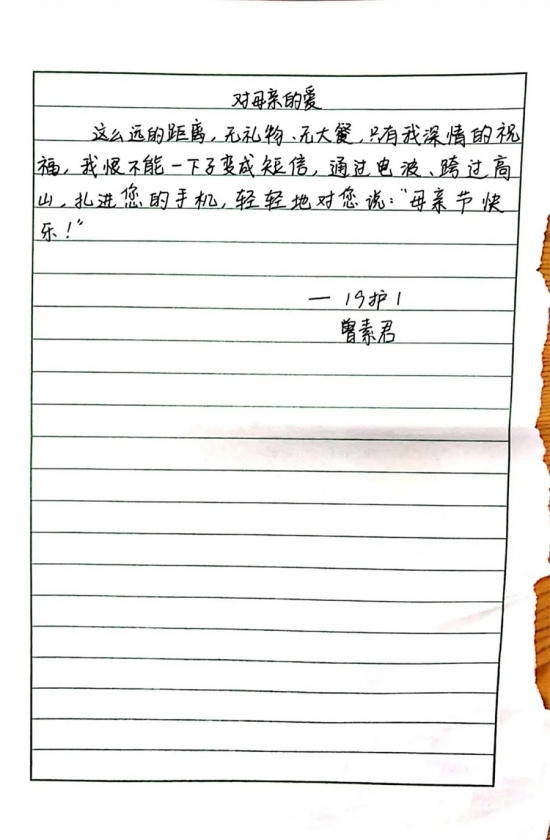 对母亲的爱
这么远的距离，无礼物、无大餐，只有我深情的祝
福，我恨不能一下子变成短信，通过电波、跨过高
山，扎进您的手机，轻轻地对您说：“母亲节快
乐！”
— 19护1
曾素君